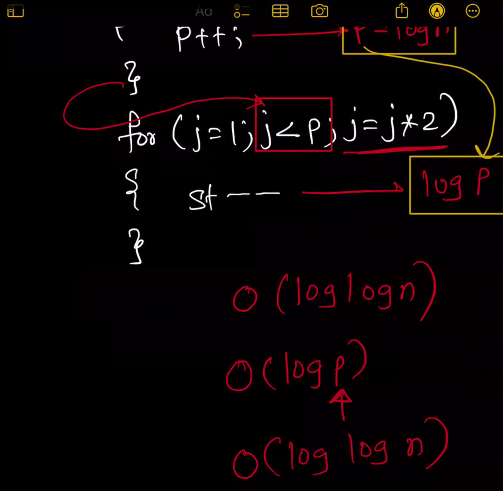 { P++; P = log n
}
for (j=1; j<P; j=j*2)
{ st—— log P
}
O(log log n)
O(log P)
O(log log n)